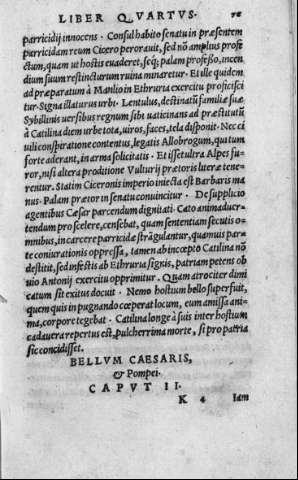 LIBER QVARTVS. 76
parricidij innocens. Consul habito senatu in præsentem
parricidam reum Cicero perorauit, sed nõ amplius profe
ctum, quam ut hostis euaderet, seq; palam professo, incen
dium suum restincturum ruina minaretur. Et ille quidem
ad præparatum à Manlio in Ethruria exercitũ proficisci
tur. Signa illaturus urbi. Lentulus, destinatũ familiæ suæ
Sybillinis uersibus regnum sibi uaticinans ad præstitutũ
à Catilina diem urbe tota, uiros, faces, tela disponit. Nec ci
uili conspiratione contentus, legatis Allobrogum, qui tum
forte aderant, in arma solicitatis. Et isset ultra Alpes fu
ror, nisi altera proditione Vulturij prætoris literæ tene
rentur. Statim Ciceronis imperio iniecta est Barbaris ma
nus. Palam prætor in senatu conuincitur. De supplicio
agentibus Cæsar parcendum dignitati. Cato animaduer
tendum pro scelere, censebat, quam sententiam secutis o
mnibus, in carcere parricidæ strãgulantur, quamuis par
te coniurationis oppressa, tamen ab incœpto Catilina nõ
destitit, sed infestis ab Ethruria signis, patriam petens ob
uio Antonij exercitu opprimitur. Quam atrociter dimi
catum sit exitus docuit. Nemo hostium bello superfuit,
quem quis in pugnando cœperat locum, eum amissa ani
ma, corpore tegebat. Catilina longè à suis inter hostium
cadauera repertus est, pulcherrima morte, si pro patria
sic concidisset.
BELLVM CAESARIS,
& Pompei.
CAPVT II.
K 4 Iam